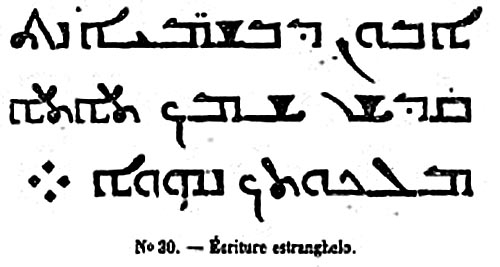 ܐܒܘܢ ܕܒܫܡ̈ܝܐ ܢܬ
ܩܕܫ ܫܡܟ ܬܐܬܐ
ܡܠܟܘܬܟ ܢܗܘܐ ܀
No — Écriture estranghelo.